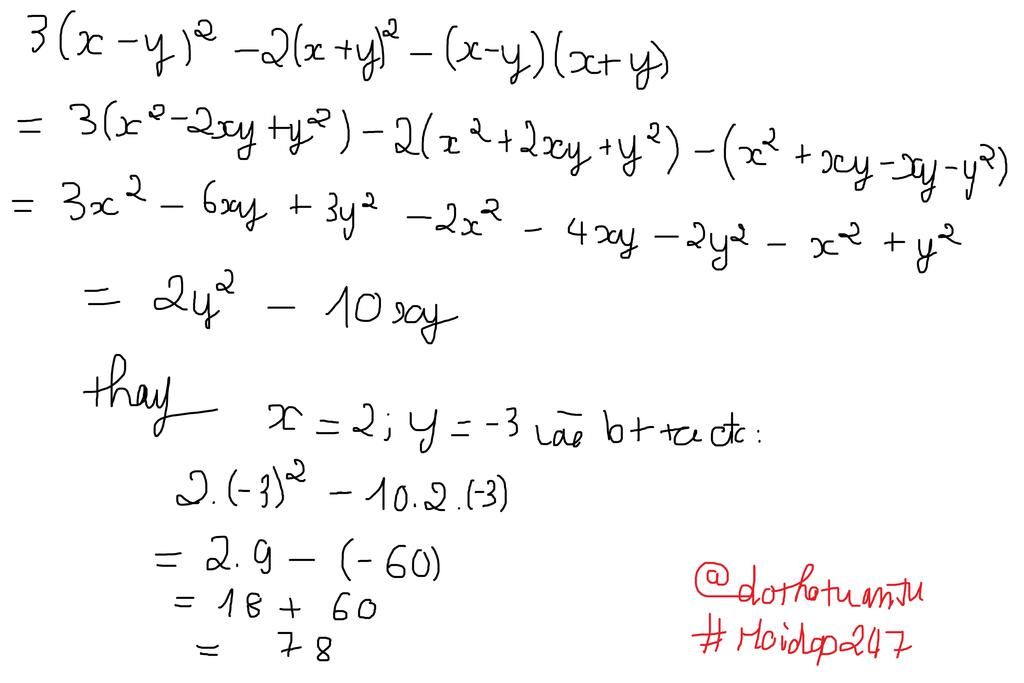 3(x-y)² -2(x+y)² -(x-y)(x+y)
= 3(x²-2xy+y²)-2(x²+2xy+y²)-(x²+xy-xy-y²)
= 3x² - 6xy + 3y² -2x² - 4xy -2y² - x² + y²
= 2y² - 10xy
thay x = 2; y = -3 vào bt ta đc:
2.(-3)² - 10.2.(-3)
= 2.9 - (-60)
= 18 + 60
= 78
#Hoidap247